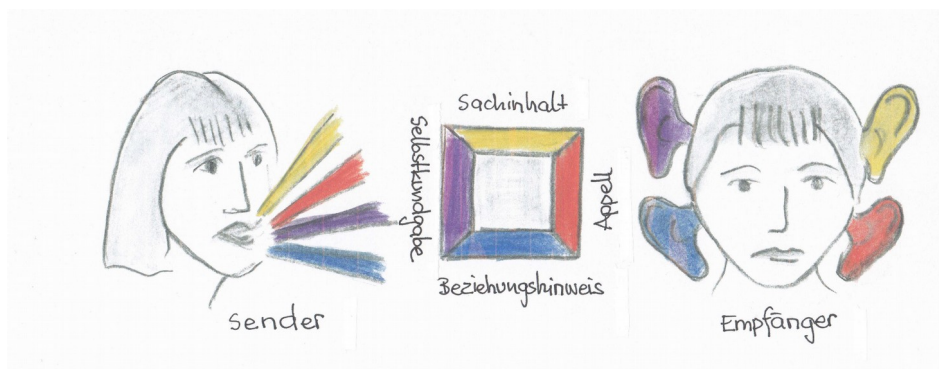 Sachinhalt
Selbstkundgabe
Appell
Beziehungshinweis
Sender
Empfänger